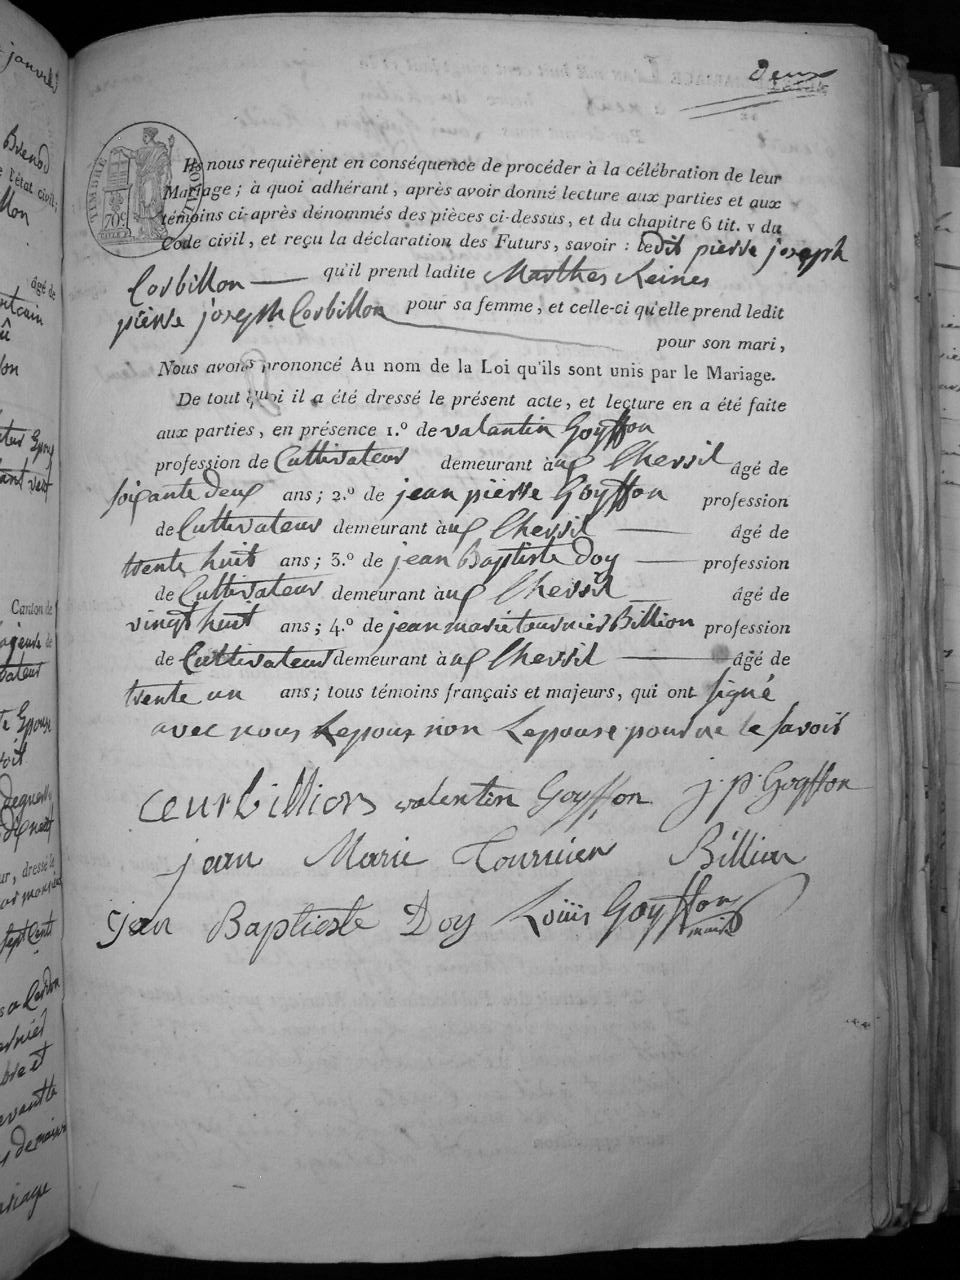 deux
TIMBRE ROYAL
70c
Ils nous requièrent en conséquence de procéder à la célébration de leur
Mariage ; à quoi adhérant, après avoir donné lecture aux parties et aux
témoins ci-après dénommés des pièces ci-dessus, et du chapitre 6 tit. v du
Code civil, et reçu la déclaration des Futurs, savoir : ledit pierre joseph
Corbillon qu'il prend ladite Marthes Reines
pierre joseph Corbillon pour sa femme, et celle-ci qu'elle prend ledit
pour son mari,
Nous avons prononcé Au nom de la Loi qu'ils sont unis par le Mariage.
De tout quoi il a été dressé le présent acte, et lecture en a été faite
aux parties, en présence 1.º de valantin Goyffon
profession de Cultivateur demeurant à Chevril âgé de
soixante deux ans ; 2.º de jean pierre Goyffon profession
de Cultivateur demeurant à Chevril âgé de
trente huit ans ; 3.º de jean Baptiste Doy profession
de Cultivateur demeurant à Chevril âgé de
vingt huit ans ; 4.º de jean marie tournier Billion profession
de Cultivateur demeurant à Chevril âgé de
trente un ans ; tous témoins français et majeurs, qui ont signé
avec nous Lepoux non Lepouse pour ne le savoir
Ceurbillion valentin Goyffon j. p. Goyffon
jean Marie Tournier Billion
jan Baptieste Doy Louis Goyffon
maire